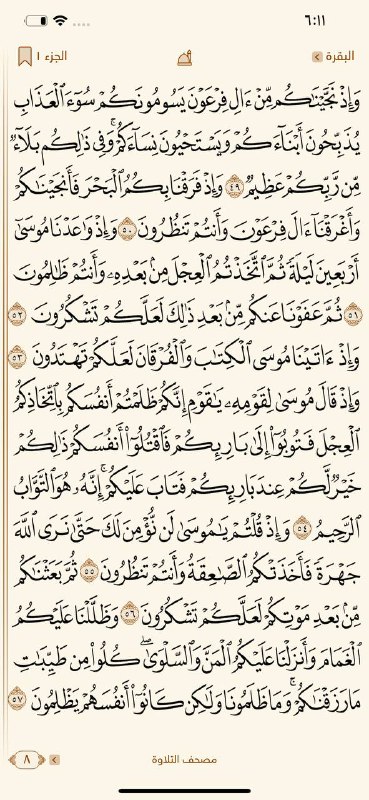 ٦:١١
البقرة
الجزء ١
وَإِذْ نَجَّيْنَٰكُم مِّنْ ءَالِ فِرْعَوْنَ يَسُومُونَكُمْ سُوٓءَ ٱلْعَذَابِ
يُذَبِّحُونَ أَبْنَآءَكُمْ وَيَسْتَحْيُونَ نِسَآءَكُمْ ۚ وَفِى ذَٰلِكُم بَلَآءٌ
مِّن رَّبِّكُمْ عَظِيمٌ ٤٩ وَإِذْ فَرَقْنَا بِكُمُ ٱلْبَحْرَ فَأَنجَيْنَٰكُمْ
وَأَغْرَقْنَآ ءَالَ فِرْعَوْنَ وَأَنتُمْ تَنظُرُونَ ٥٠ وَإِذْ وَٰعَدْنَا مُوسَىٰٓ
أَرْبَعِينَ لَيْلَةً ثُمَّ ٱتَّخَذْتُمُ ٱلْعِجْلَ مِنۢ بَعْدِهِۦ وَأَنتُمْ ظَٰلِمُونَ
٥١ ثُمَّ عَفَوْنَا عَنكُم مِّنۢ بَعْدِ ذَٰلِكَ لَعَلَّكُمْ تَشْكُرُونَ ٥٢
وَإِذْ ءَاتَيْنَا مُوسَى ٱلْكِتَٰبَ وَٱلْفُرْقَانَ لَعَلَّكُمْ تَهْتَدُونَ ٥٣
وَإِذْ قَالَ مُوسَىٰ لِقَوْمِهِۦ يَٰقَوْمِ إِنَّكُمْ ظَلَمْتُمْ أَنفُسَكُم بِٱتِّخَاذِكُمُ
ٱلْعِجْلَ فَتُوبُوٓا۟ إِلَىٰ بَارِئِكُمْ فَٱقْتُلُوٓا۟ أَنفُسَكُمْ ذَٰلِكُمْ
خَيْرٌ لَّكُمْ عِندَ بَارِئِكُمْ فَتَابَ عَلَيْكُمْ ۚ إِنَّهُۥ هُوَ ٱلتَّوَّابُ
ٱلرَّحِيمُ ٥٤ وَإِذْ قُلْتُمْ يَٰمُوسَىٰ لَن نُّؤْمِنَ لَكَ حَتَّىٰ نَرَى ٱللَّهَ
جَهْرَةً فَأَخَذَتْكُمُ ٱلصَّٰعِقَةُ وَأَنتُمْ تَنظُرُونَ ٥٥ ثُمَّ بَعَثْنَٰكُم
مِّنۢ بَعْدِ مَوْتِكُمْ لَعَلَّكُمْ تَشْكُرُونَ ٥٦ وَظَلَّلْنَا عَلَيْكُمُ
ٱلْغَمَامَ وَأَنزَلْنَا عَلَيْكُمُ ٱلْمَنَّ وَٱلسَّلْوَىٰ ۖ كُلُوا۟ مِن طَيِّبَٰتِ
مَا رَزَقْنَٰكُمْ ۚ وَمَا ظَلَمُونَا وَلَٰكِن كَانُوٓا۟ أَنفُسَهُمْ يَظْلِمُونَ ٥٧
مصحف التلاوة
٨